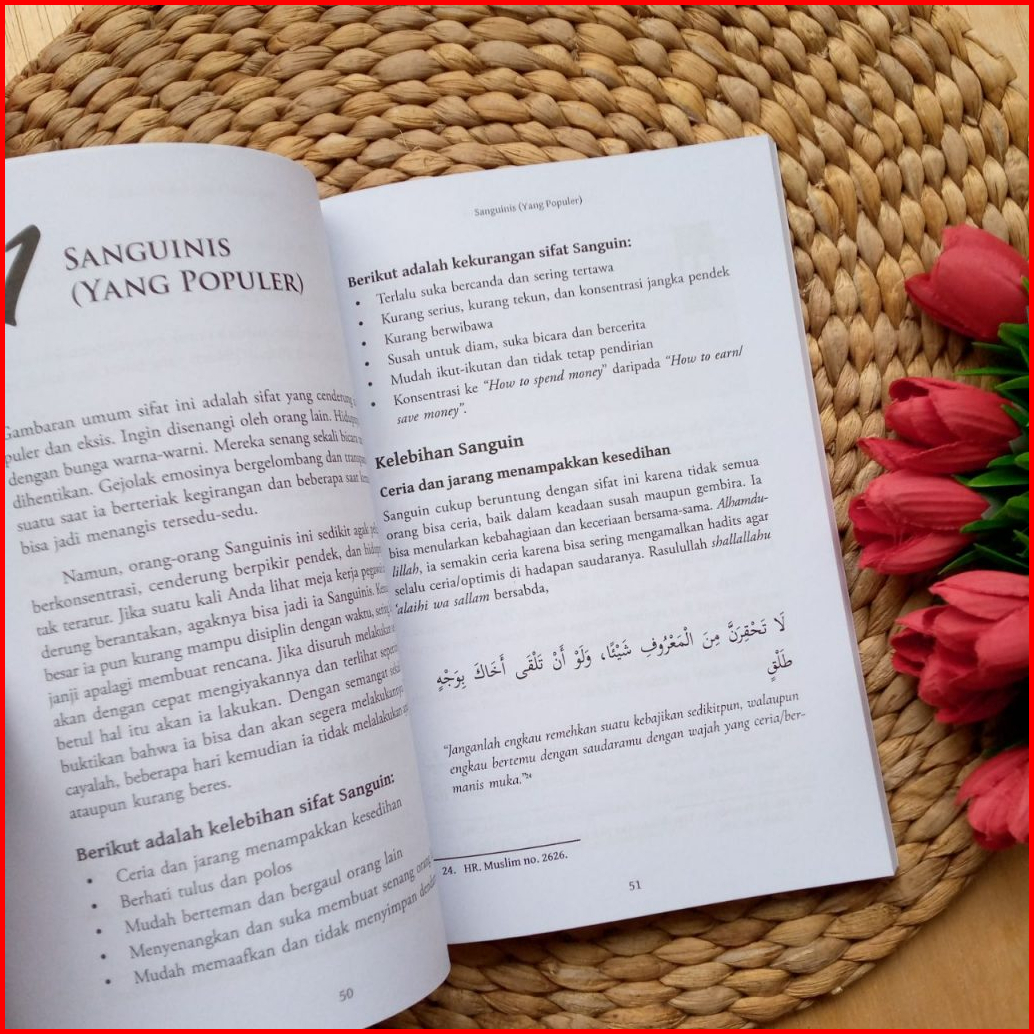 SANGUINIS
(YANG POPULER)
Gambaran umum sifat ini adalah sifat yang cenderung
puler dan eksis. Ingin disenangi oleh orang lain.
dengan bunga warna-warni. Mereka senang sekali bicara
dihentikan. Gejolak emosinya bergelombang dan
suatu saat ia berteriak kegirangan dan beberapa saat
bisa jadi menangis tersedu-sedu.
Namun, orang-orang Sanguinis ini sedikit agak
berkonsentrasi, cenderung berpikir pendek, dan
tak teratur. Jika suatu kali Anda lihat meja kerja
derung berantakan, agaknya bisa jadi ia Sanguinis.
besar ia pun kurang mampu disiplin dengan waktu,
janji apalagi membuat rencana. Jika disuruh melakukan
akan dengan cepat mengiyakannya dan terlihat
betul hal itu akan ia lakukan. Dengan semangat
buktikan bahwa ia bisa dan akan segera melakukannya
cayalah, beberapa hari kemudian ia tidak melalakukan
ataupun kurang beres.
Berikut adalah kelebihan sifat Sanguin:
• Ceria dan jarang menampakkan kesedihan
• Berhati tulus dan polos
• Mudah berteman dan bergaul orang lain
• Menyenangkan dan suka membuat senang orang
• Mudah memaafkan dan tidak menyimpan
50
Sanguinis (Yang Populer)
Berikut adalah kekurangan sifat Sanguin:
• Terlalu suka bercanda dan sering tertawa
• Kurang serius, kurang tekun, dan konsentrasi jangka pendek
• Kurang berwibawa
• Susah untuk diam, suka bicara dan bercerita
• Mudah ikut-ikutan dan tidak tetap pendirian
• Konsentrasi ke “How to spend money” daripada “How to earn/
save money”.
Kelebihan Sanguin
Ceria dan jarang menampakkan kesedihan
Sanguin cukup beruntung dengan sifat ini karena tidak semua
orang bisa ceria, baik dalam keadaan susah maupun gembira. Ia
bisa menularkan kebahagiaan dan keceriaan bersama-sama. Alhamdu-
lillah, ia semakin ceria karena bisa sering mengamalkan hadits agar
selalu ceria/optimis di hadapan saudaranya. Rasulullah shallallahu
‘alaihi wa sallam bersabda,
لَا تَحْقِرَنَّ مِنَ الْمَعْرُوفِ شَيْئًا، وَلَوْ أَنْ تَلْقَى أَخَاكَ بِوَجْهٍ
طَلْقٍ
“Janganlah engkau remehkan suatu kebajikan sedikitpun, walaupun
engkau bertemu dengan saudaramu dengan wajah yang ceria/ber-
manis muka.”24
24. HR. Muslim no. 2626.
51